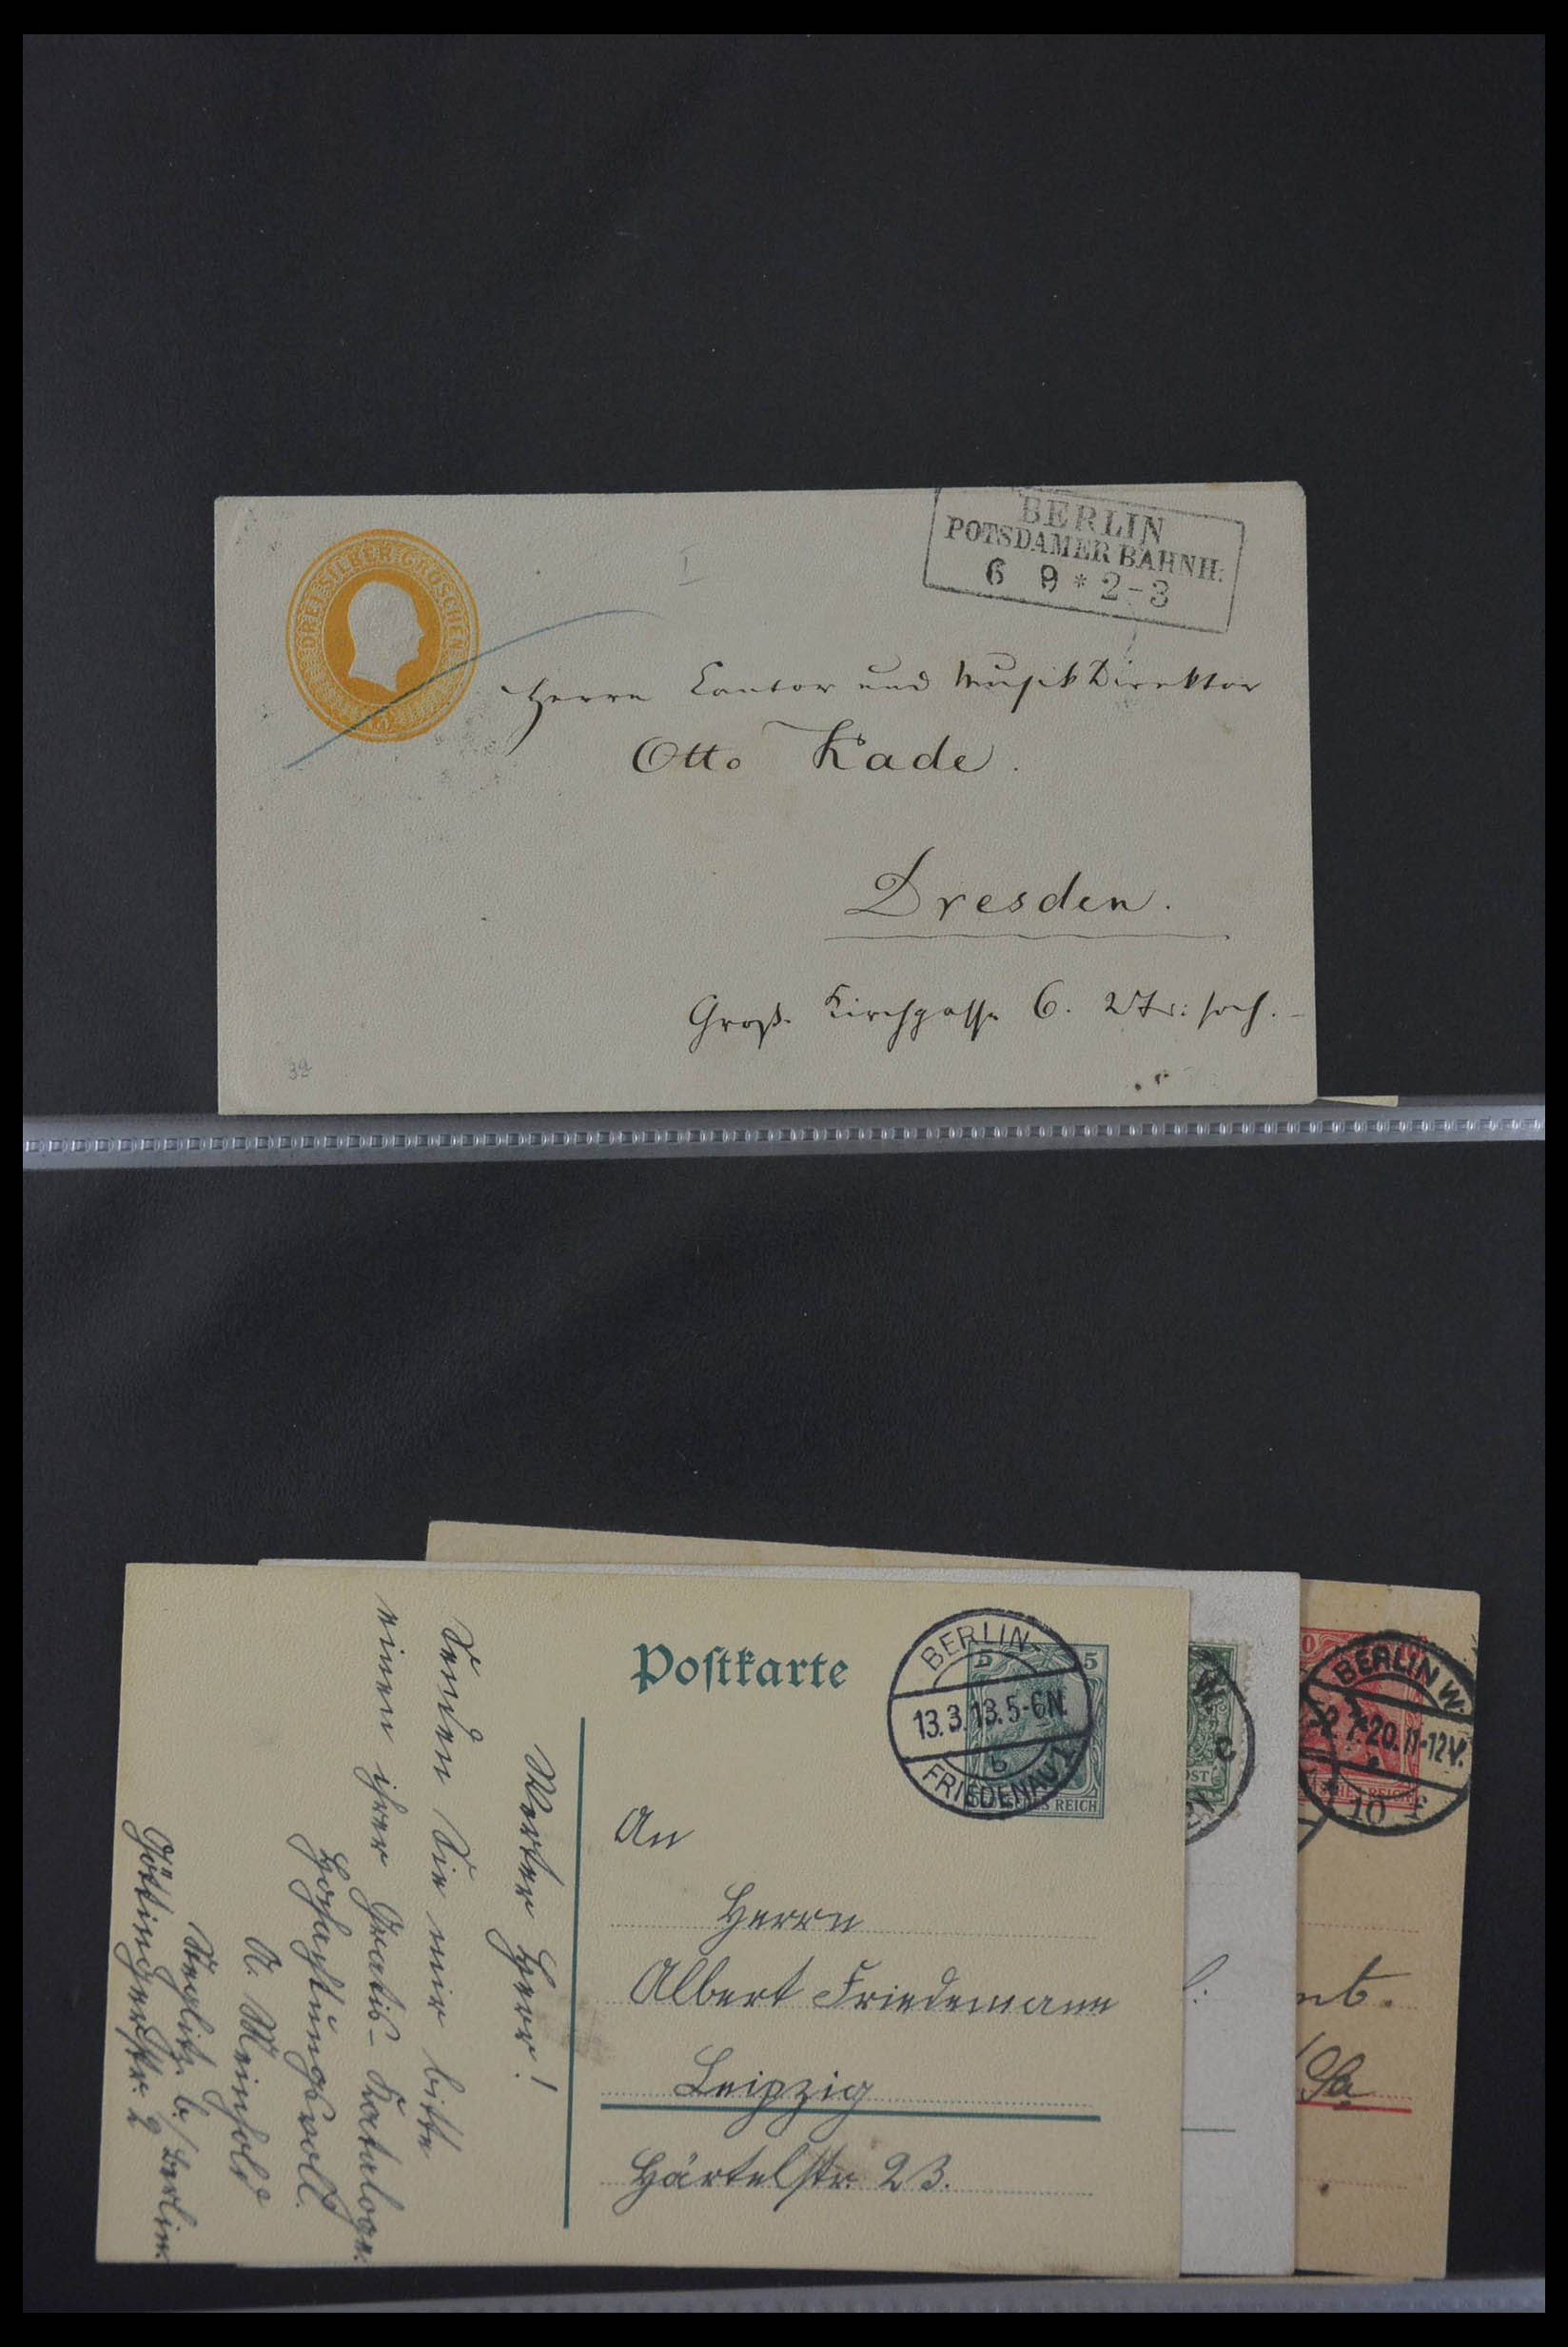 DREI SILBERGROSCHEN
I
BERLIN
POTSDAMER BAHNH:
6 9 * 2-3
Herrn Cantor und Musik Direktor
Otto Kade.
Dresden.
Große Kirchgasse 6. 2 Tr: hoch.
Postkarte
BERLIN-
b
13.3.13.5-6N.
b
FRIEDENAU 1
5
REICH
An
Herrn
Albert Friedemann
Leipzig
Härtelstr. 23.
Werter Herr!
Senden Sie mir bitte
einen ihrer Gratis-Kataloge.
Hochachtungsvoll
A. Meinhold
Steglitz b/Berlin.
Göttingerstr. 2
W.
c
OST
0
BERLIN W.
7.20.11-12V.
* 10 f
REICH
nt.